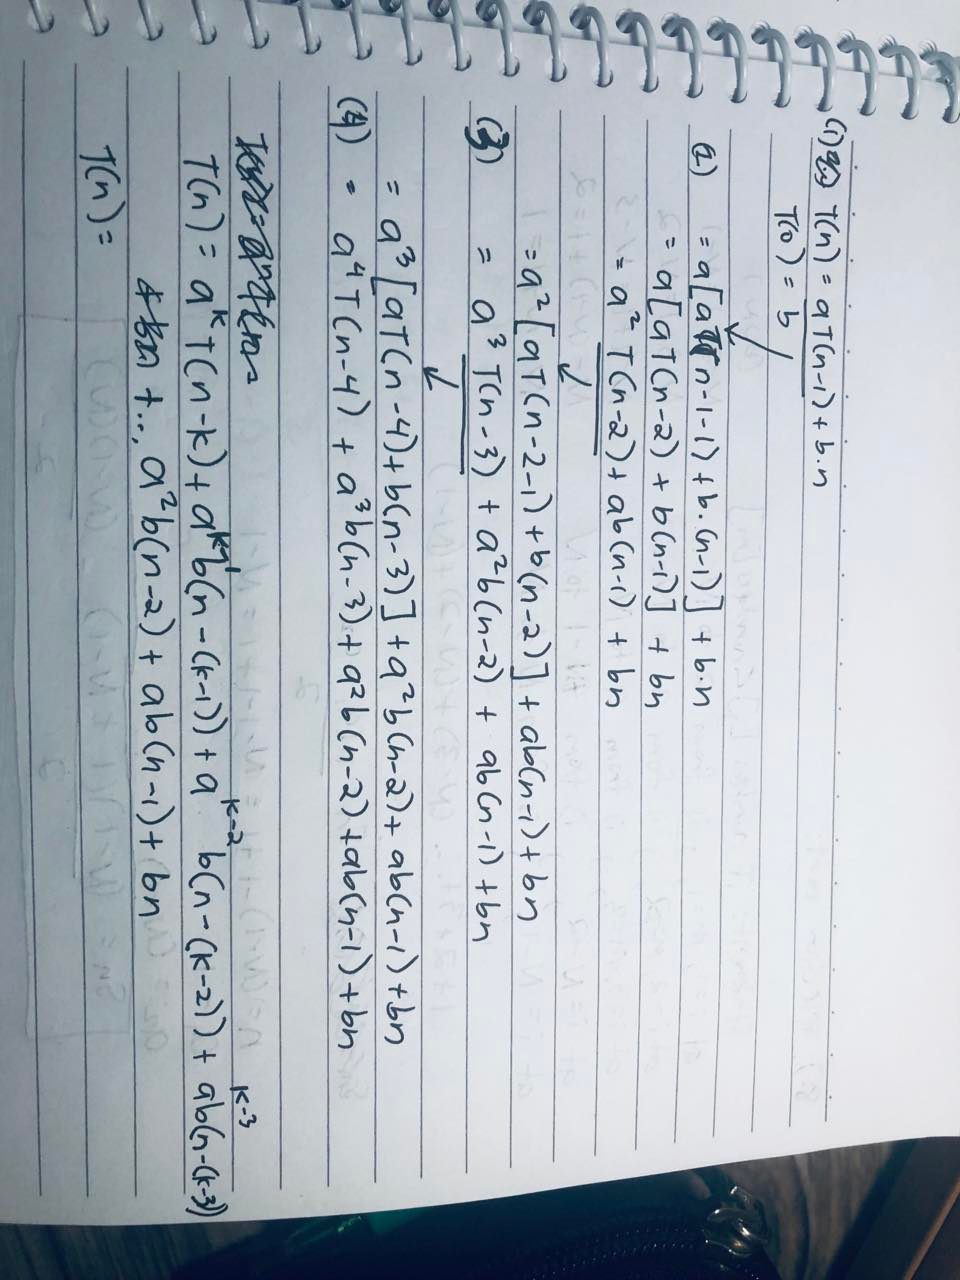 (1) T(n) = aT(n-1) + b.n
T(0) = b
2) = a[aT(n-1-1) + b.(n-1)] + b.n
= a[aT(n-2) + b(n-1)] + bn
= a²T(n-2) + ab(n-1) + bn
= a²[aT(n-2-1) + b(n-2)] + ab(n-1) + bn
(3) = a³T(n-3) + a²b(n-2) + ab(n-1) + bn
= a³[aT(n-4) + b(n-3)] + a²b(n-2) + ab(n-1) + bn
(4) = a⁴T(n-4) + a³b(n-3) + a²b(n-2) + ab(n-1) + bn
T(n) = aᵏT(n-k) + aᵏ⁻¹b(n-(k-1)) + aᵏ⁻²b(n-(k-2)) + aᵏ⁻³b(n-(k-3))
+..., a²b(n-2) + ab(n-1) + bn
T(n) =